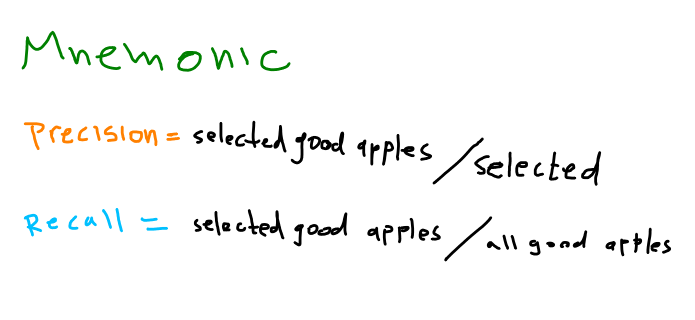 Mnemonic
Precision = selected good apples / selected
Recall = selected good apples / all good apples